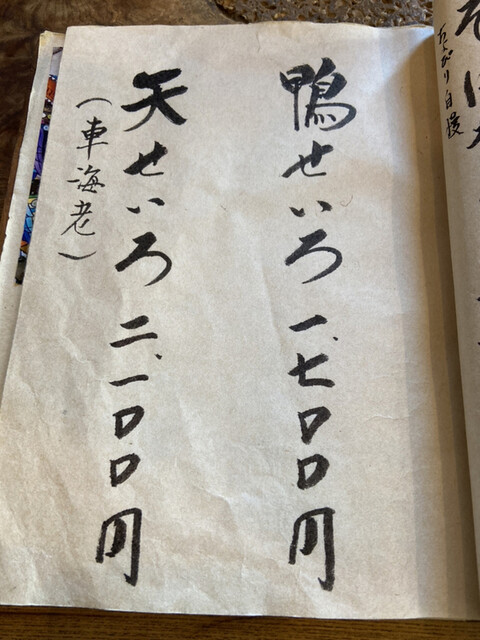 自慢
鴨せいろ 一、七〇〇円
天せいろ 二、一〇〇円
（車海老）